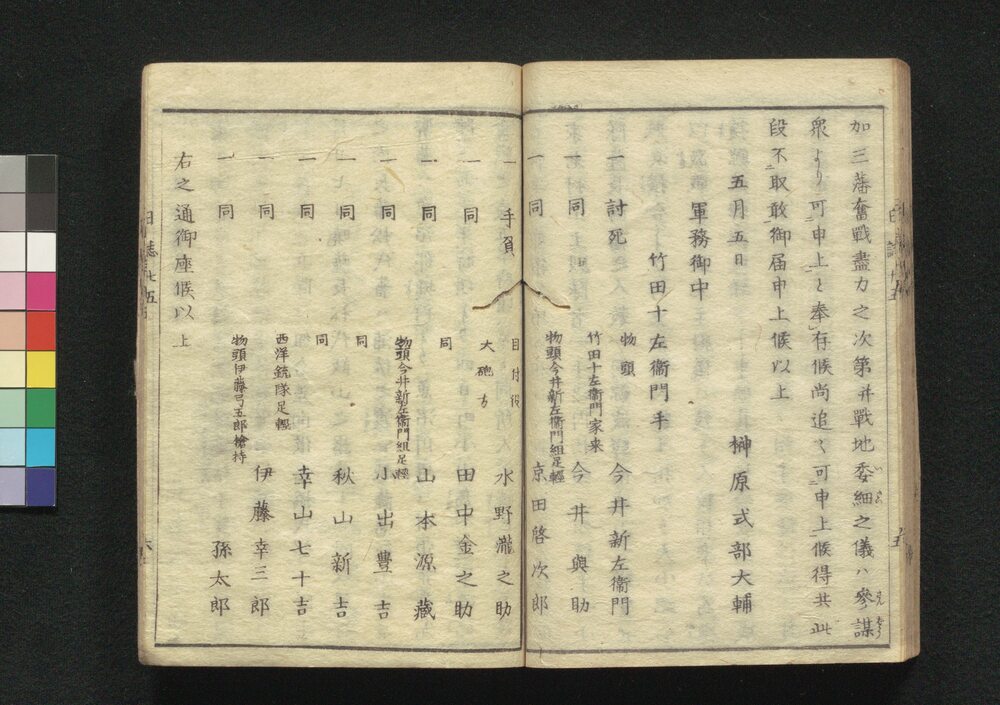 加三藩奮戰盡力之次第并戰地委細之儀ハ參謀
衆より可申上と奉存候尚追々可申上候得共此
段不取敢御届申上候以上
五月五日
榊原式部大輔
軍務御中
竹田十左衞門手
一討死
物頭
今井新左衞門
一同
竹田十左衞門家来
今井與助
一同
物頭今井新左衞門組足輕
京田啓次郎
一手負
目付役
水野瀧之助
一同
大砲方
田中金之助
一同
同
山本源藏
一同
物頭今井新左衞門組足輕
小出豐吉
一同
同
秋山新吉
一同
同
幸山七十吉
一同
西洋銃隊足輕
伊藤幸三郎
一同
物頭伊藤弓五郎槍持
孫太郎
右之通御座候以上
日誌廿五